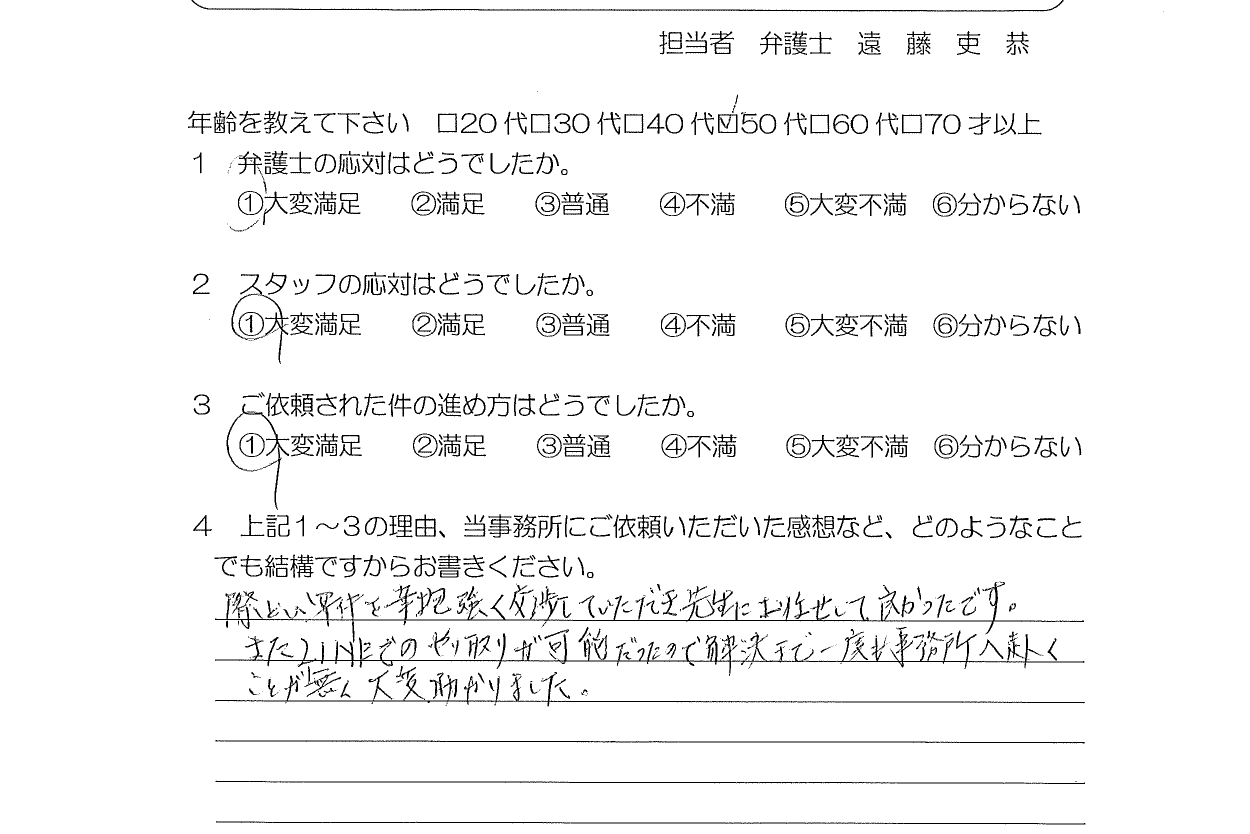 担当者　弁護士　遠　藤　吏　恭
年齢を教えて下さい　□20代□30代□40代☑50代□60代□70才以上
１　弁護士の応対はどうでしたか。
①大変満足　②満足　③普通　④不満　⑤大変不満　⑥分からない
２　スタッフの応対はどうでしたか。
①大変満足　②満足　③普通　④不満　⑤大変不満　⑥分からない
３　ご依頼された件の進め方はどうでしたか。
①大変満足　②満足　③普通　④不満　⑤大変不満　⑥分からない
４　上記１～３の理由、当事務所にご依頼いただいた感想など、どのようなこと
でも結構ですからお書きください。
際どい案件を辛抱強く交渉していただき先生にお任せして良かったです。
またLINEでのやり取りが可能だったので解決まで一度も事務所へ赴く
ことが無く大変助かりました。